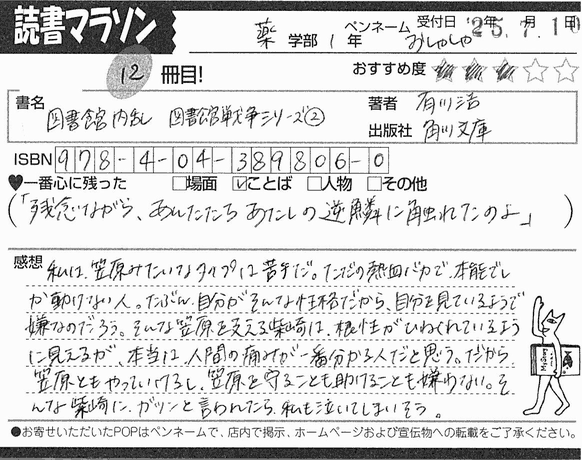 読書マラソン
薬 学部 1 年 ペンネーム おしゃしゃ 受付日 '25.7.10
12 冊目! おすすめ度 ★★★☆☆
書名 図書館内乱 図書館戦争シリーズ② 著者 有川浩
出版社 角川文庫
ISBN 978-4-04-389806-0
♥一番心に残った □場面 ☑ことば □人物 □その他
(「残念ながら、あんたたちあたしの逆鱗に触れたのよ」)
感想 私は、笠原みたいなタイプは苦手だ。ただの熱血バカで、本能でし
か動けない人。たぶん、自分がそんな性格だから、自分を見ているようで
嫌なのだろう。そんな笠原を支える柴崎は、根性がひねくれているよう
に見えるが、本当は、人間の痛みが一番分かる人だと思う。だから、
笠原ともやっていけるし、笠原を守ることも助けることも嫌わない。そ
んな柴崎に、ガツンと言われたら、私も泣いてしまいそう。
●お寄せいただいたPOPはペンネームで、店内で掲示、ホームページおよび宣伝物への転載をご了承ください。